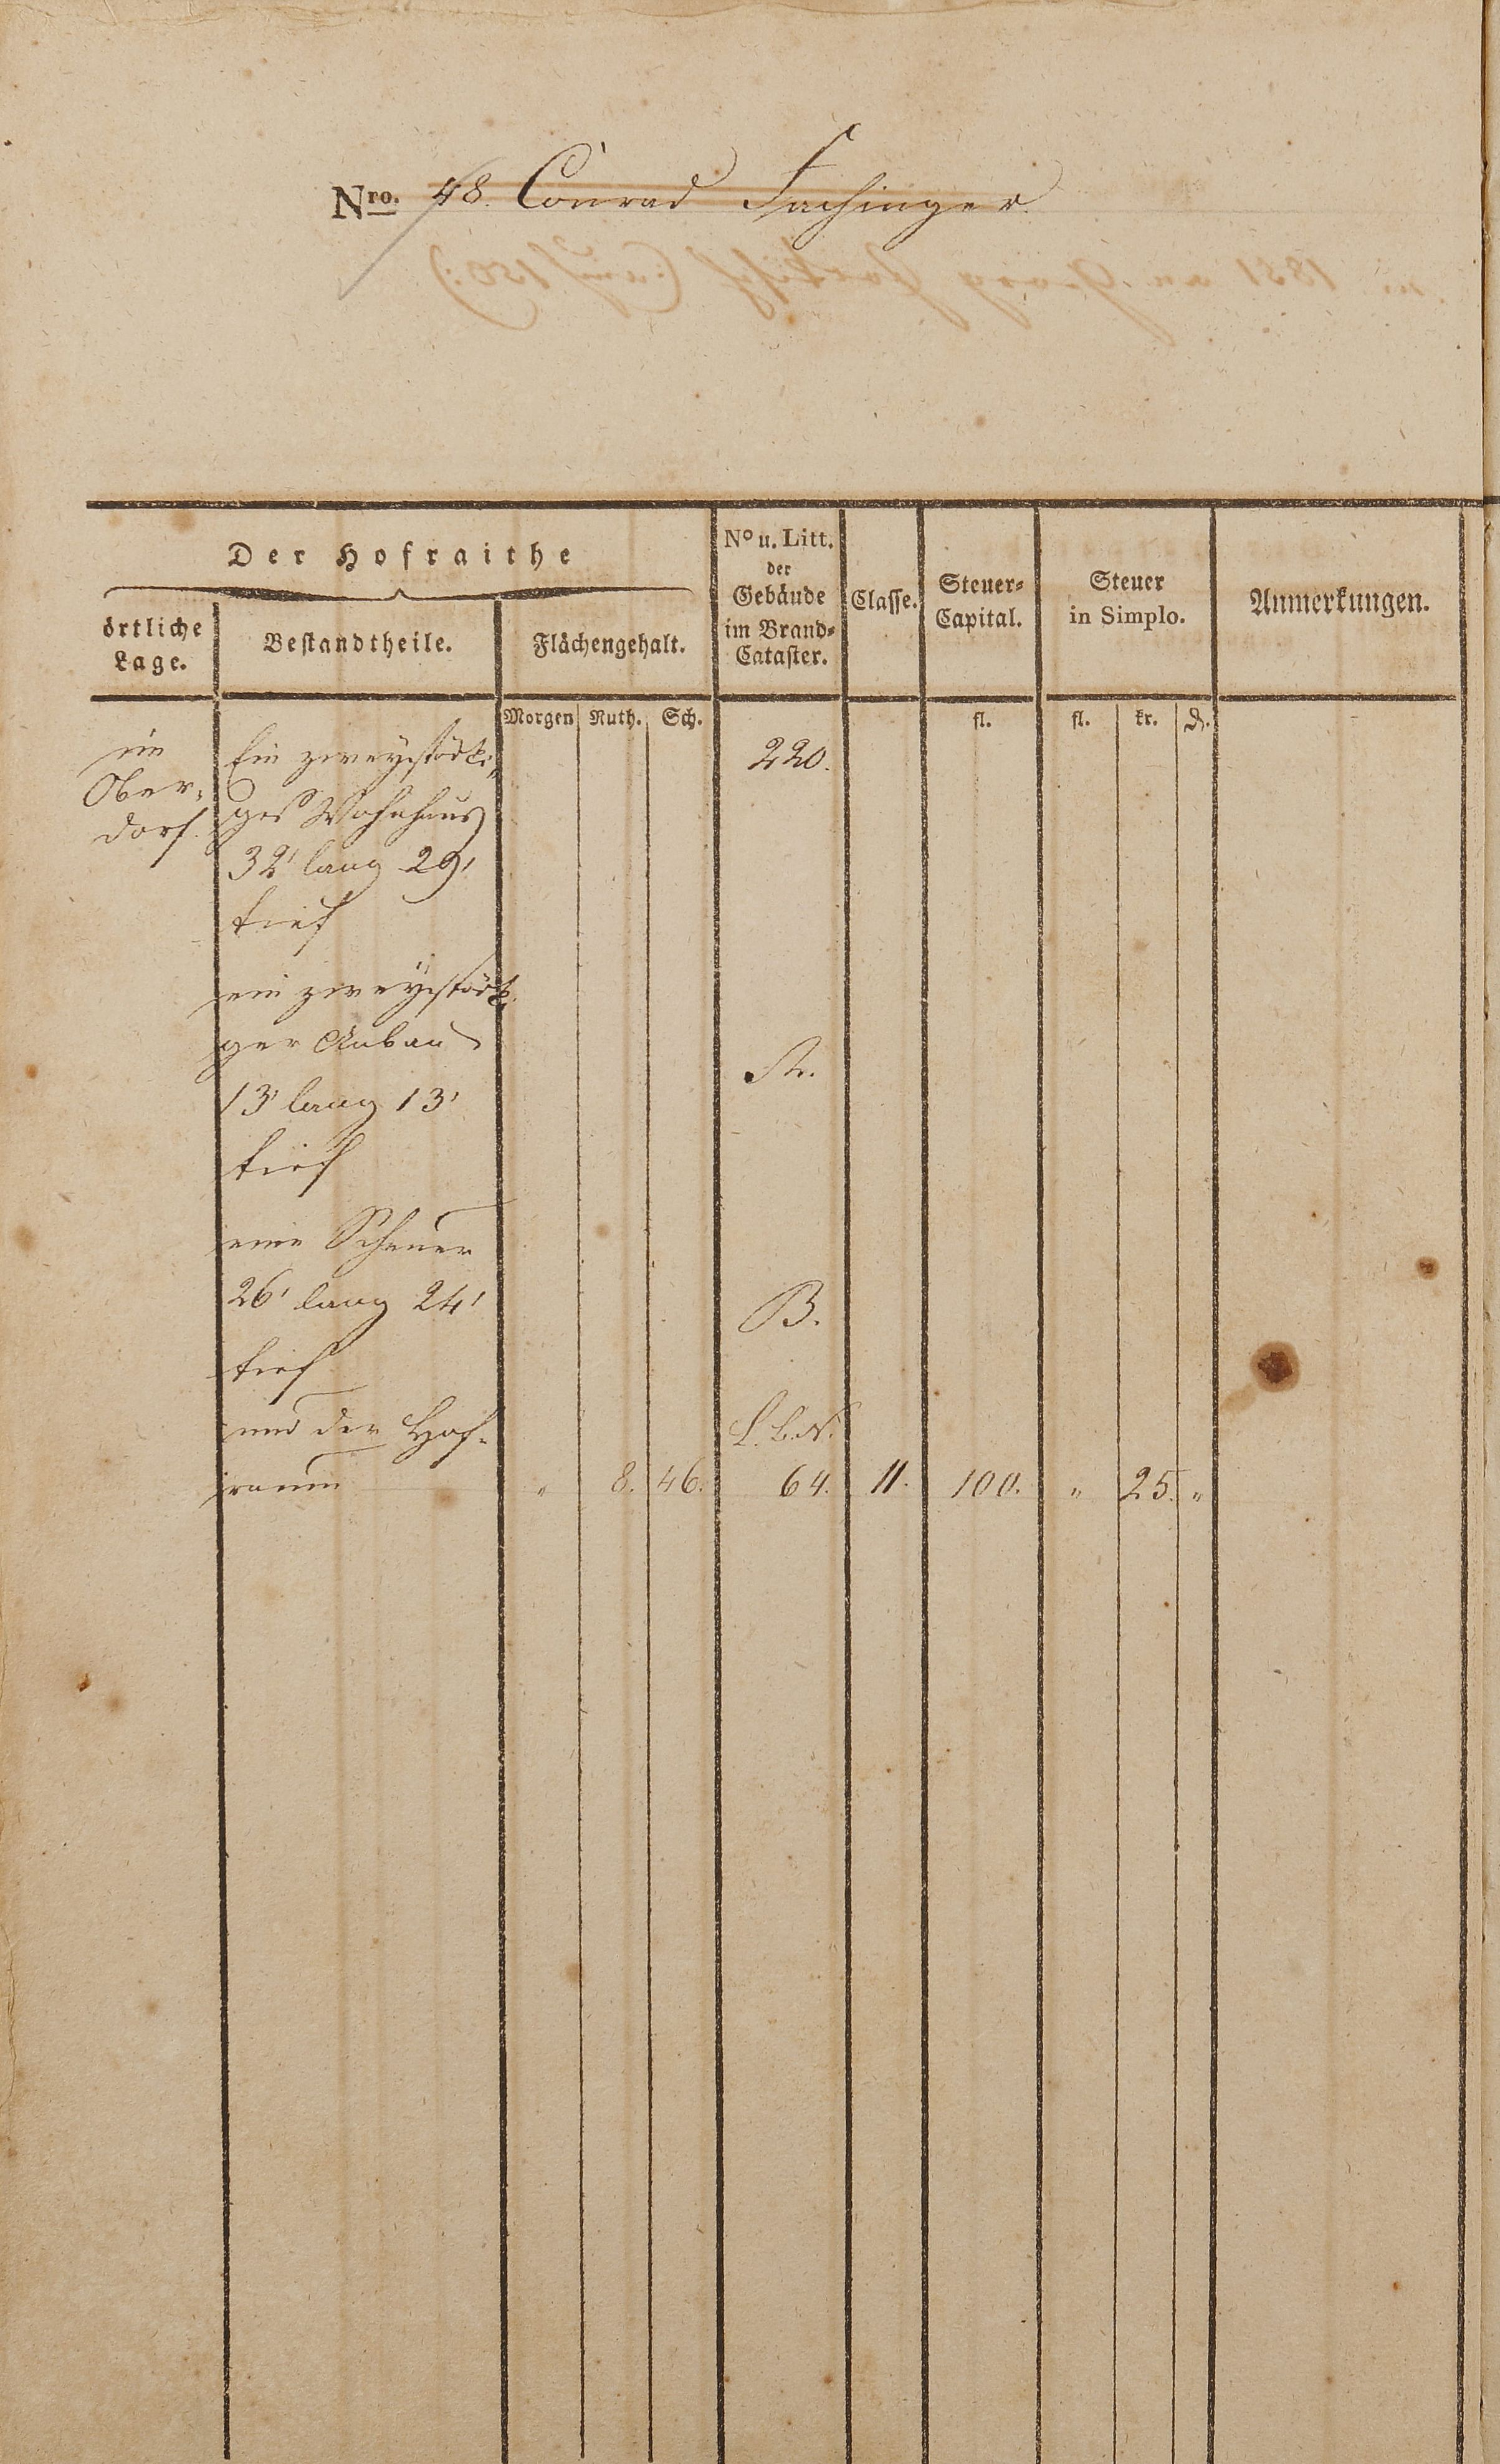 Nro. 48. Conrad Fachinger
Der Hofraithe
örtliche Lage.
Bestandtheile.
Flächengehalt.
No u. Litt.
der
Gebäude
im Brand-
Cataster.
Classe.
Steuer-
Capital.
Steuer
in Simplo.
Anmerkungen.
Morgen Ruth. Sch.
fl.
fl. kr. d.
im
Ober-
dorf.
Ein zweystöcki-
ges Wohnhaus
32' lang 29'
tief
220.
ein zweystöcki
ger Anbau
13' lang 13'
tief
A.
eine Scheuer
26' lang 24'
tief
B.
und der Hof-
raum
L.b.N.
" 8. 46. 64. 11. 100. " 25. "